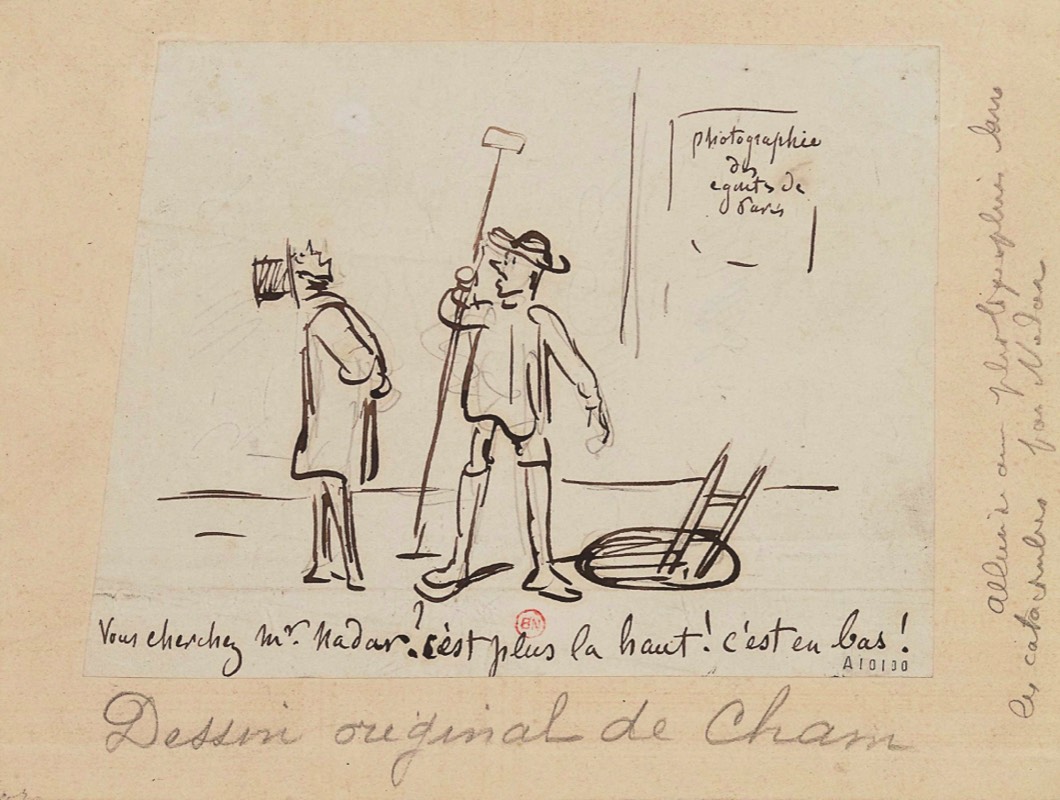 photographie
des
egouts de
Paris
Vous cherchez Mr. Nadar? c'est plus la haut! c'est en bas!
BN
A10100
Dessin original de Cham
allusion aux photographies dans
les catacombes par Nadar